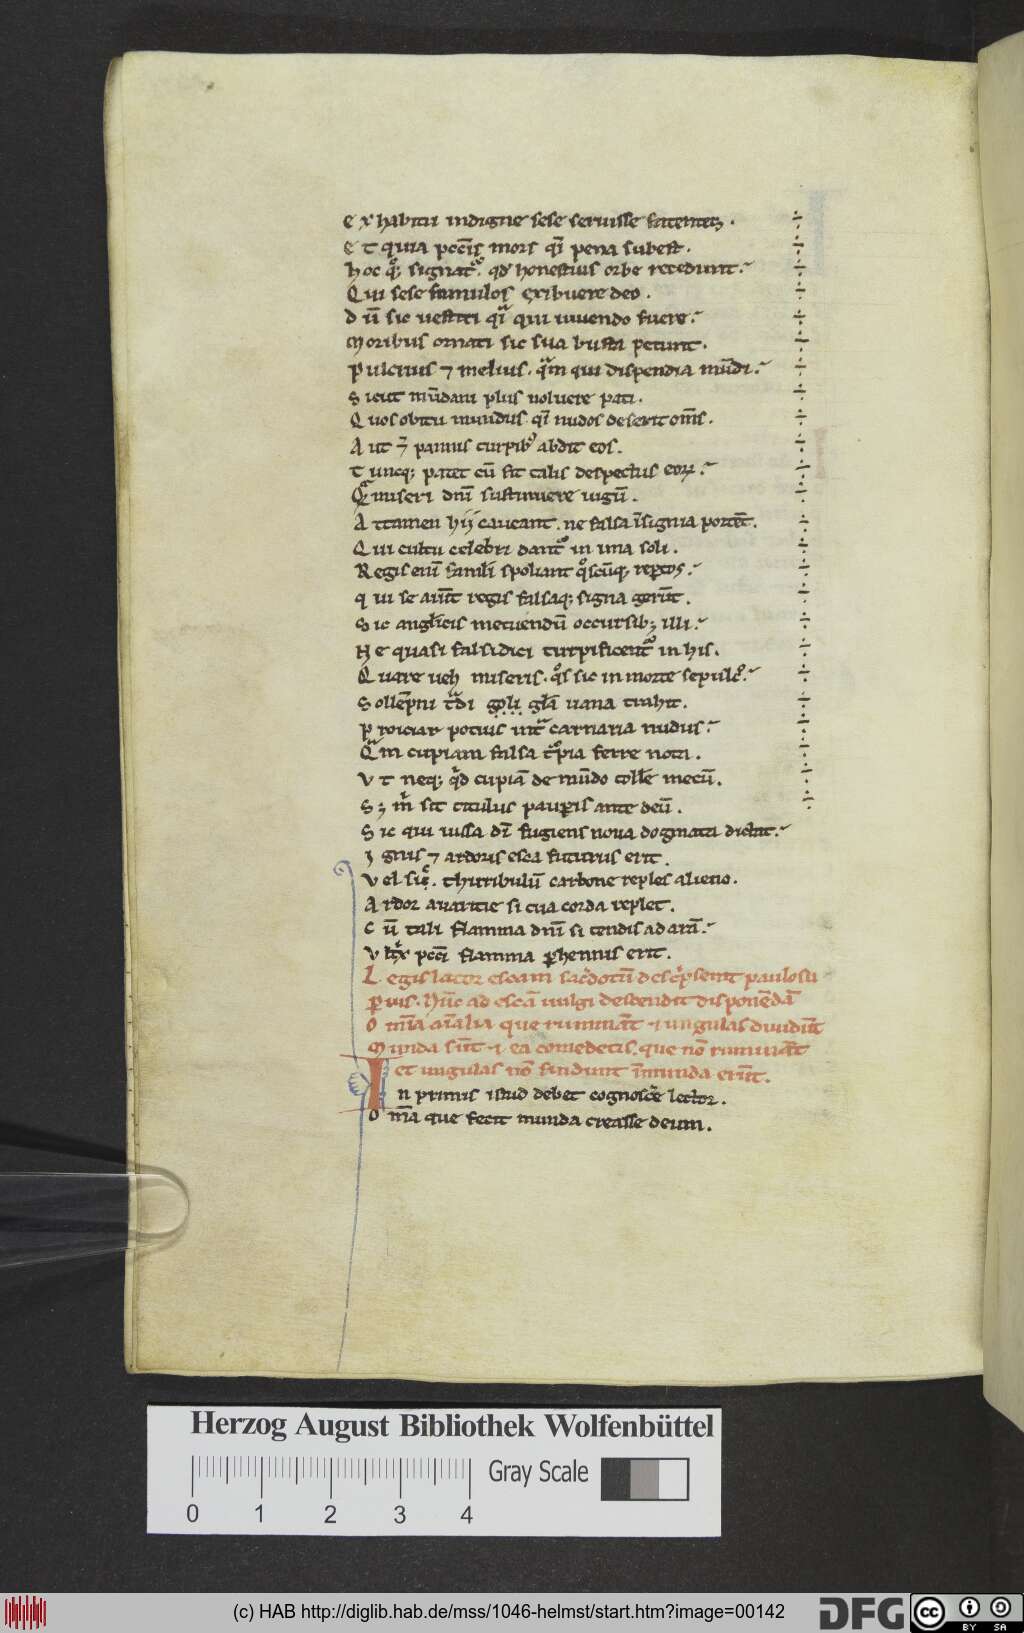 Ex habitu indigne sese seruisse fatentes .
Et quia pccīs mors q̄i pena subest .
hoc q̊; signat᷑. qđ honestius orbe recedunt.
Qui sese famulos exibuere deo .
dū sic uestiri qi qui uiuendo fuere.
Moribus ornati sic sua busta petunt.
Pulcrius ⁊ melius. qm qui dispendia mūdi.
Sicut mūdani plus uoluere pati.
Quos obitu mundus qi nudos deserit om̄s.
Aut pannus turpib; abdit eos.
Tuncq; patet cū sit talis despectus eoꝝ.
Qm miseri dn̄i sustinuere iugū.
Attamen hij caueant. ne falsa īsignia portēt.
Qui cultu celebri dant᷑ in ima soli.
Regis eni famuli spoliant q̊scūq; reptos.
qui se aiūt regis falsaq; signa gerūt.
Sic anglicis metuendū occursib; illi.
Ne quasi falsidici turpificent᷑ in his.
Quare ueh miseris. q̊s sic in morte sepulc̊.
Sollēpni t̾di goli gła uana trahit.
Proiciar potius int carnaria nudus.
Qm cupiam falsa ꝓpia ferre nota.
Vt neq; qd cupiā de mūdo tolle mecū.
Sꝫ m sit titulus paupis ante deū.
Sic qui iussa dī fugiens noua dogmata dictat.
Ignis ⁊ ardoris esca futurus erit.
Vel sic. thuribulū carbone reples alieno.
Ardor auaritie si tua corda replet.
Cū tali flamma dn̄i si tendis ad arā.
Vltx pccī flamma phennis erit.
Legis lator escam sacdotū descpserit paulo su
pius. hūc ad escā uulgi descendit disponēdā
Omīa aīalia que rumināt ⁊ ungulas diuidūt
Munda sūt ⁊ ea comedetis. que nō rumināt
et ungulas nō findunt īmunda erūt.
In primis istud debet cognosce lector.
Omīa que fecit munda creasse deum.
Herzog August Bibliothek Wolfenbüttel
Gray Scale
0 1 2 3 4
(c) HAB http://diglib.hab.de/mss/1046-helmst/start.htm?image=00142
DFG
cc
BY SA